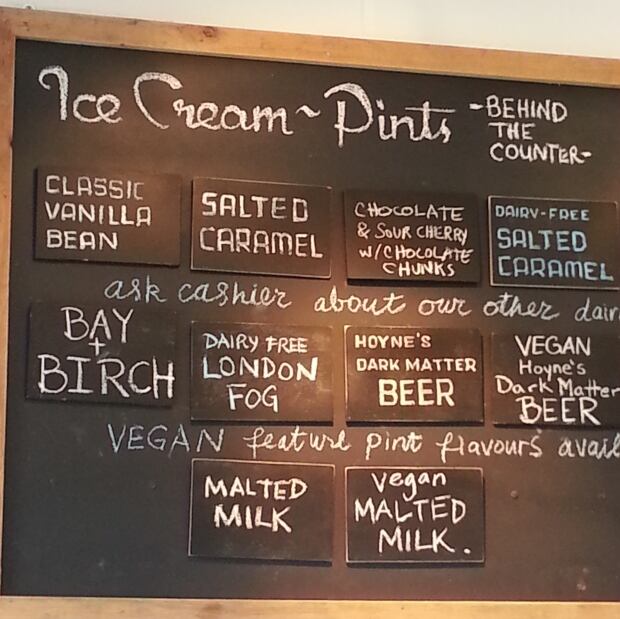 Ice Cream~Pints -BEHIND
THE
COUNTER-
CLASSIC
VANILLA
BEAN
SALTED
CARAMEL
CHOCOLATE
& SOUR CHERRY
W/CHOCOLATE
CHUNKS
DAIRY-FREE
SALTED
CARAMEL
ask cashier about our other dair
BAY
+
BIRCH
DAIRY FREE
LONDON
FOG
HOYNE'S
DARK MATTER
BEER
VEGAN
Hoyne's
Dark Matter
BEER
VEGAN feature pint flavours avail
MALTED
MILK
vegan
MALTED
MILK.